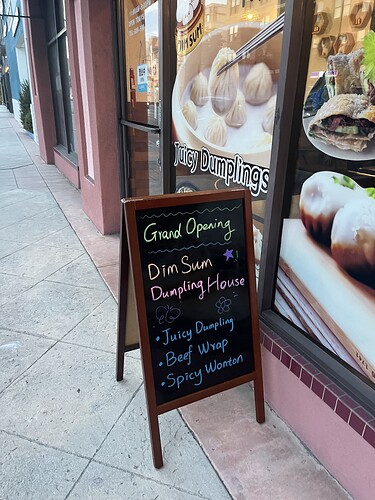 DIM SUM
Juicy Dumplings
Grand Opening
Dim Sum
Dumpling House
• Juicy Dumpling
• Beef Wrap
• Spicy Wonton